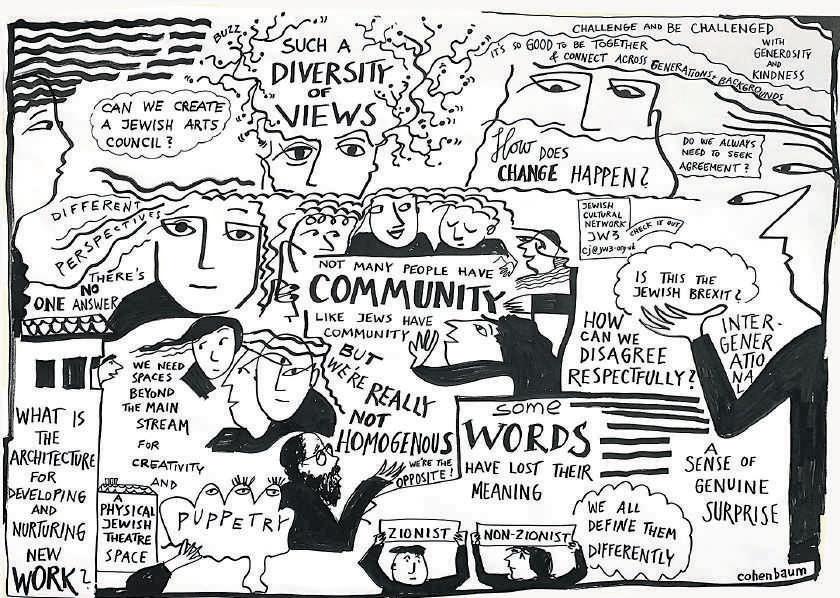 BUZZ
SUCH A
DIVERSITY
OF
VIEWS
CHALLENGE AND BE CHALLENGED
WITH
GENEROSITY
AND
KINDNESS
IT'S SO GOOD TO BE TOGETHER
& CONNECT ACROSS GENERATIONS + BACKGROUNDS
CAN WE CREATE
A JEWISH ARTS
COUNCIL?
HOW DOES
CHANGE HAPPEN?
DO WE ALWAYS
NEED TO SEEK
AGREEMENT?
DIFFERENT
PERSPECTIVES
THERE'S
NO
ONE ANSWER
JEWISH
CULTURAL
NETWORK
JW3
cj@jw3.org.uk
CHECK IT OUT
NOT MANY PEOPLE HAVE
COMMUNITY
LIKE JEWS HAVE
COMMUNITY
BUT
WE'RE REALLY
NOT
HOMOGENOUS
WE'RE THE
OPPOSITE!
IS THIS THE
JEWISH BREXIT?
HOW
CAN WE
DISAGREE
RESPECTFULLY?
INTER-
GENER
ATIO
NAL
WE NEED
SPACES
BEYOND
THE MAIN
STREAM
FOR
CREATIVITY
AND
PUPPETRY
WHAT IS
THE
ARCHITECTURE
FOR
DEVELOPING
AND
NURTURING
NEW
WORK?
A
PHYSICAL
JEWISH
THEATRE
SPACE
some
WORDS
HAVE LOST THEIR
MEANING
ZIONIST
NON-ZIONIST
WE ALL
DEFINE THEM
DIFFERENTLY
A
SENSE OF
GENUINE
SURPRISE
cohenbaum